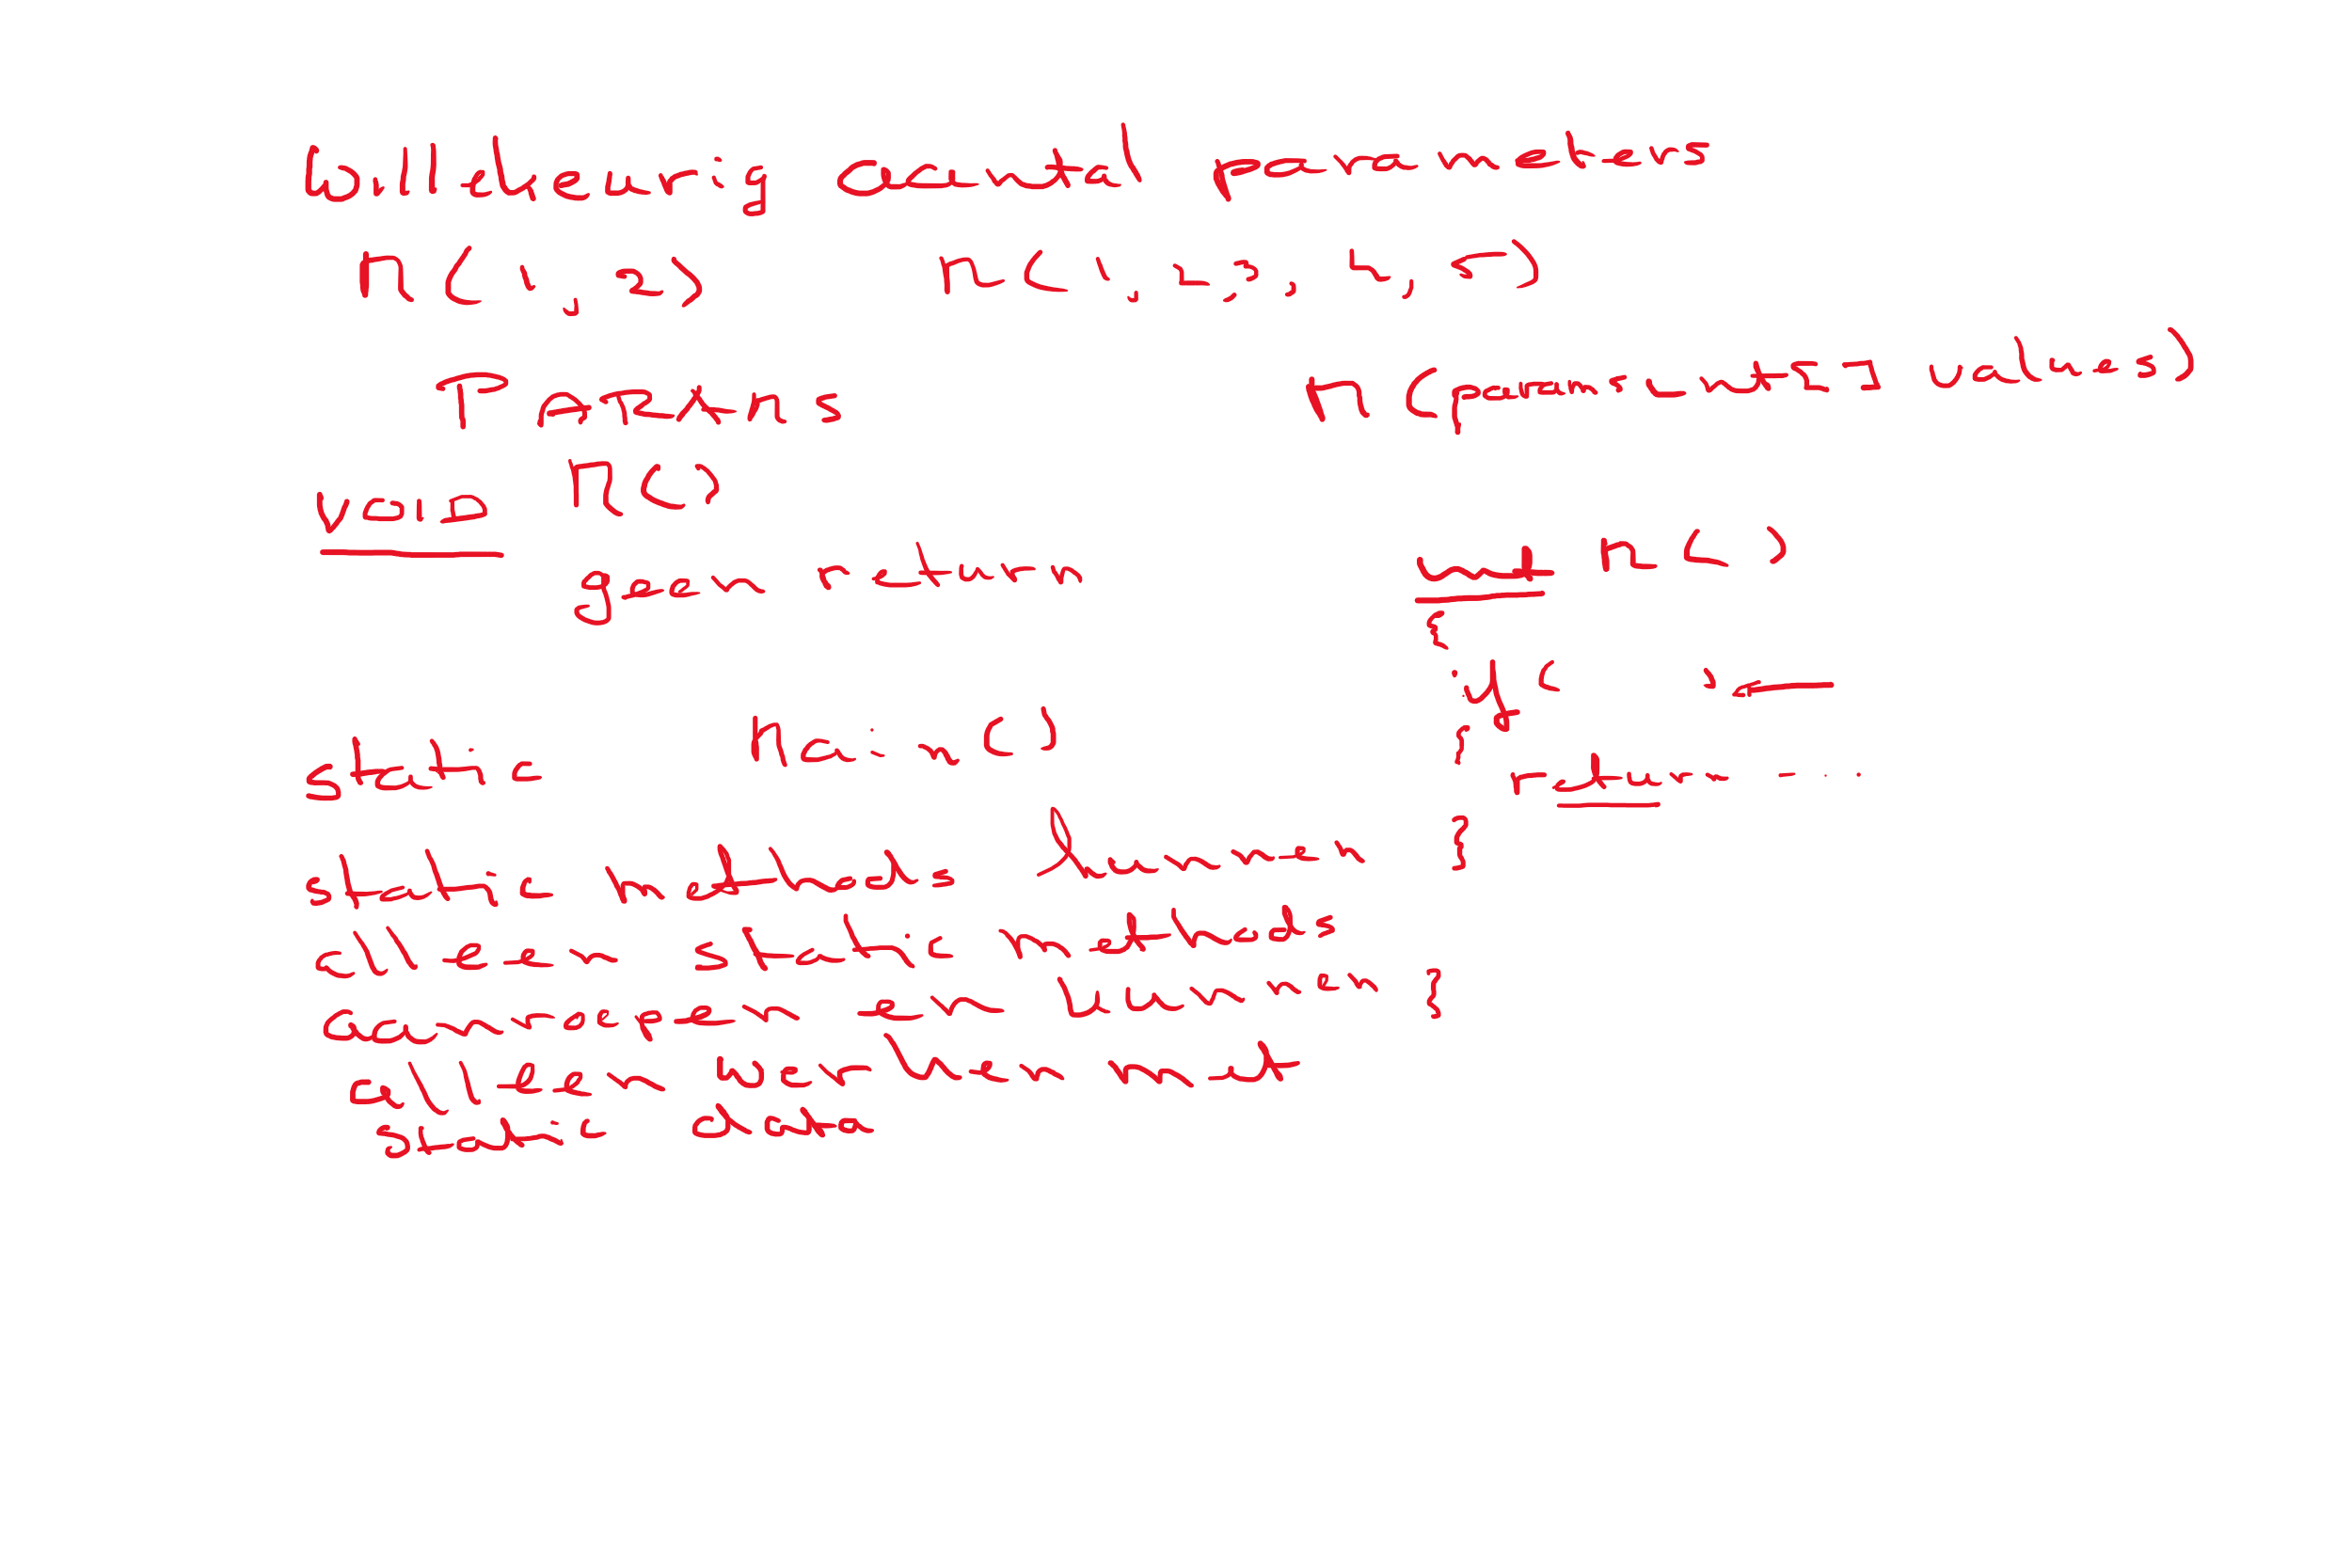 willekeurig aantal parameters
M(1, 2) M(1, 2, 3, 4, 5)
PARAMS M(params int[] values)
VOID M()
geen return
int M()
{
if( )
{
return ...
}
}
static Main()
static methods kunnen
alleen static methods
aanroepen en kunnen
alleen werken met
static data